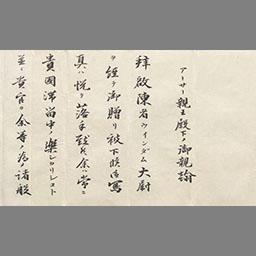 アーサー親王殿下ノ御親諭
拝啓陳者ウインダム大尉
ヲ経テ御贈リ被下候御写
真ハ悦テ落手致候余ハ常ニ
貴国滞留中ノ楽シカリシコト
並ニ貴官ノ余等ノ為ノ諸般